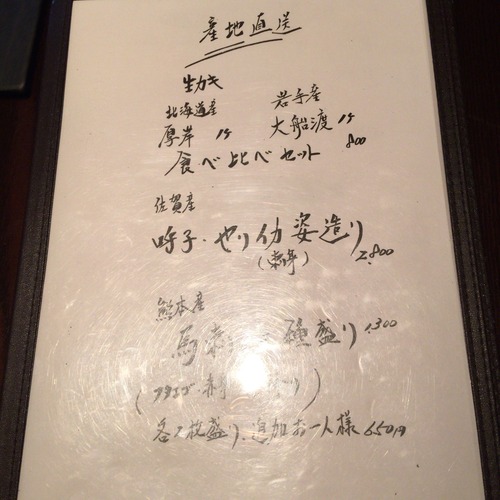 産地直送
生カキ
北海道産 岩手産
厚岸 1ヶ 大船渡 1ヶ
食べ比べセット 800
佐賀産
呼子・やりイカ姿造り
(刺身) 2,800
熊本産
馬刺 盛り 1,300
(フタエゴ・赤身
各2枚盛り、追加お一人様 650円